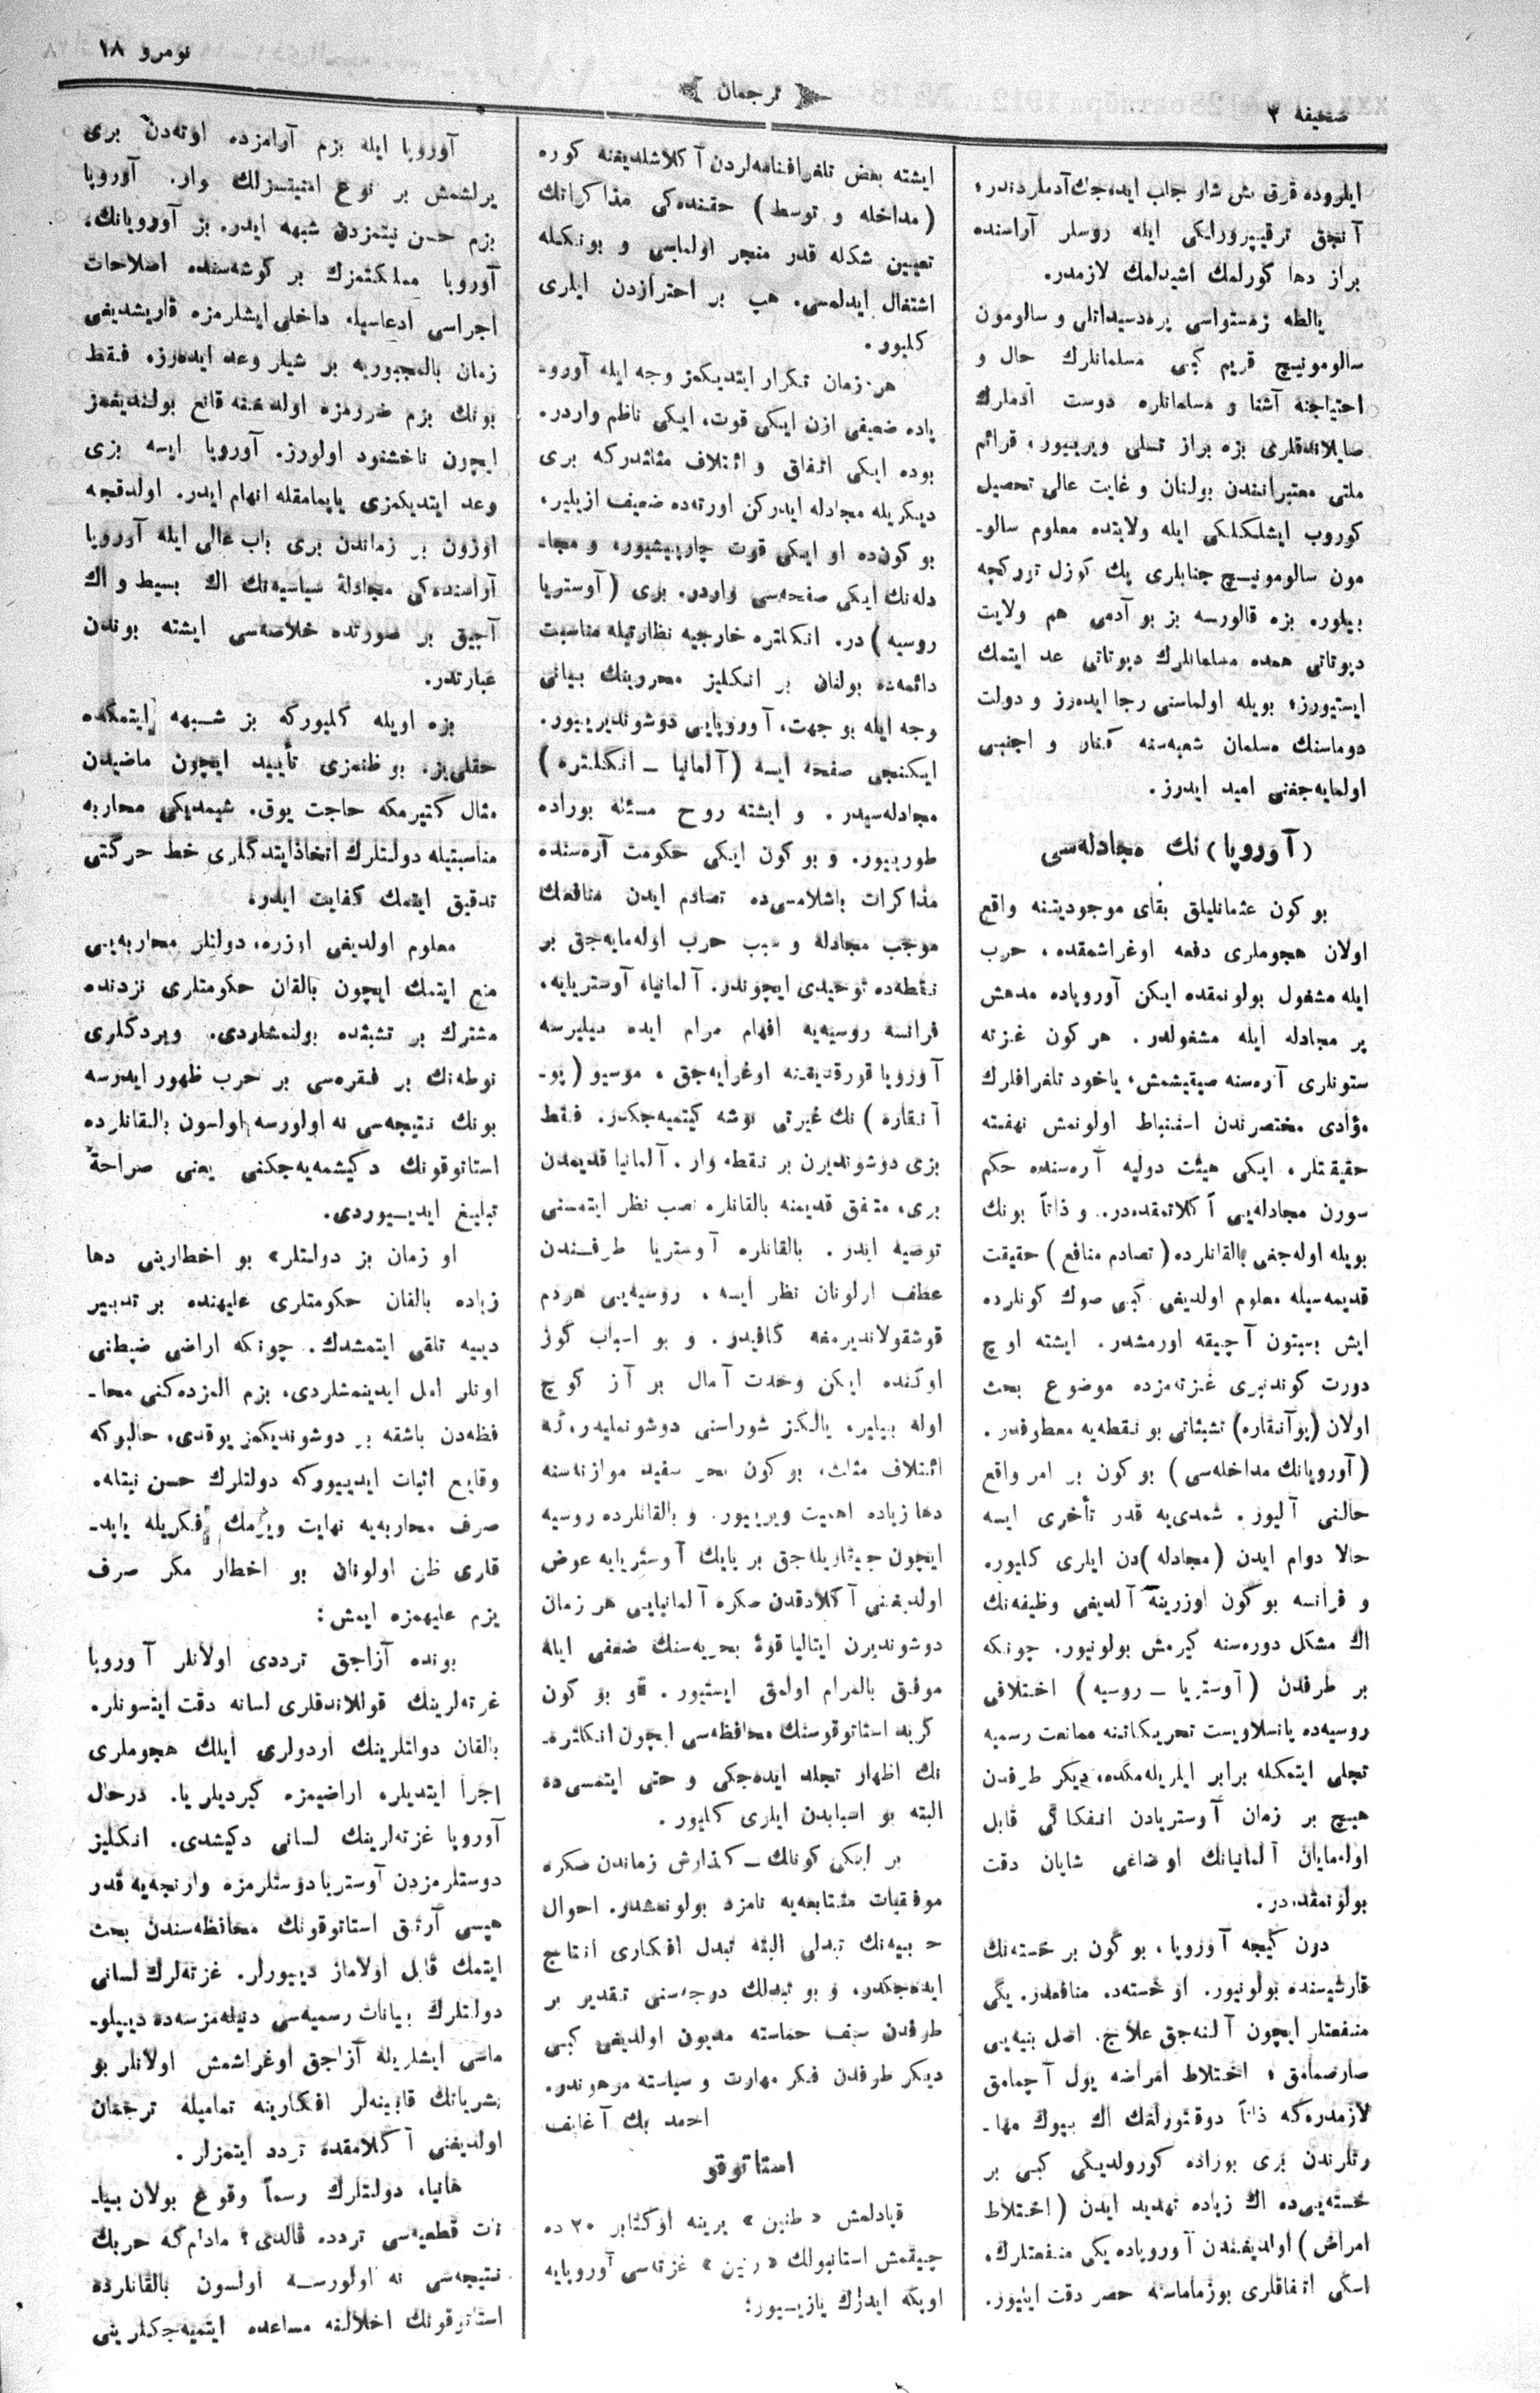 نومرو ١٨
ترجمان
صحیفه ٢
ایلروده فرق ش شار جلب ایده‌جك آدملردندر؛
آنجق ترقیپرورلکی ایله روسلر آراسنده
براز دها كورلمك اشیدلمك لازمدر.
یالطه زمستواسی پره‌دسیداتلی و سالومون
سالومونیچ قریم كبی مسلمانلرك حال و
احتیاجنه آشنا و مسلمانلره دوست آدملرك
صایلاندقلری بزه براز تسلی ویرییور، قرائم
ملتی معتبرانندن بولنان و غایت عالی تحصیل
كوروب ایشلكلكی ایله ولایتده معلوم سالو-
مون سالومونیچ جنابلری پك كوزل توركچه
بیلور. بزه قالورسه بز بو آدمی هم ولایت
دپوتاتی همده مسلمانلرك دپوتاتی عد ایتمك
ایستیورز؛ بویله اولماسنی رجا ایده‌رز و دولت
دوماسنك مسلمان شعبه‌سنه كنار و اجنبی
اولمایه‌جغنی امید ایدرز.
(آوروپا) نك مجادله‌سی
بو كون عثمانلیلق بقای موجودیتنه واقع
اولان هجوملری دفعه اوغراشمقده، حرب
ایله مشغول بولونمقده ایكن آوروپاده مدهش
بر مجادله ایله مشغولدر. هر كون غزته
ستونلری آره‌سنه صیقیشمش، یاخود تلغرافلرك
مؤادی مختصرندن استنباط اولونمش نهفته
حقیقتلر، ایكی هیئت دولیه آره‌سنده حكم
سورن مجادله‌یی آكلاتمقده‌در. و ذاتاً بونك
بویله اوله‌جغی بالقانلرده (تصادم منافع) حقیقت
قدیمه‌سیله معلوم اولدیغی كبی صوك كونلرده
ایش بسبتون آچیقه اورمشدر. ایشته اوچ
دورت كوندنبری غزته‌مزده موضوع بحث
اولان (بوآنقاره) تشبثاتی بو نقطه‌یه معطوفدر.
(آوروپانك مداخله‌سی) بو كون بر امر واقع
حالنی آلیور. شمدی‌یه قدر تأخری ایسه
حالا دوام ایدن (مجادله) دن ایلری كلیور.
و فرانسه بو كون اوزرینه آلدیغی وظیفه‌نك
اك مشكل دوره‌سنه كیرمش بولونیور. چونكه
بر طرفدن (آوستریا ـ روسیه) اختلافی
روسیه‌ده پانسلاویست تحریكاتنه ممانعت رسمیه
تجلی ایتمكله برابر ایلریله‌مكده، دیكر طرفدن
هیچ بر زمان آوستریادن انفكاكی قابل
اولمایان آلمانیانك اوضاعی شایان دقت
بولونمقده‌در.
دون كیجه آوروپا، بو كون بر خسته‌نك
قارشیسنده بولونیور. او خسته‌ده. منافعدر. یكی
منفعتلر ایچون آلنه‌جق علاج. اصل بنیه‌یی
صارصمامق؛ اختلاط امراضه یول آچمامق
لازمدركه ذاتاً دوقتورلغك اك بیوك مها-
رتلرندن بری بوراده كورولدیكی كبی بر
خسته‌یی‌ده اك زیاده تهدید ایدن (اختلاط
امراض) اولدیغندن آوروپاده یكی منفعتلرك،
اسكی اتفاقلری بوزماماسنه حصر دقت ایدیور.
ایشته بعض تلغرافنامه‌لردن آكلاشلدیغنه كوره
(مداخله و توسط) حقنده‌كی مذاكراتك
تعیین شكله قدر منجر اولماسی و بونكله
اشتغال ایدلمسی. هپ بر احترازدن ایلری
كلیور.
هر زمان تكرار ایتدیكمز وجه ایله آورو-
پاده ضعیفی ازن ایكی قوت، ایكی ناظم واردر.
بوده ایكی اتفاق و ائتلاف مثلثدركه بری
دیكریله مجادله ایدركن اورته‌ده ضعیف ازیلیر.
بو كون‌ده او ایكی قوت چارپیشیور، و مجا-
دله‌نك ایكی صفحه‌سی واردر. بری (آوستریا
روسیه) در. انكلتره خارجیه نظارتیله مناسبت
دائمه‌ده بولنان بر انكلیز محررینك بیانی
وجه ایله بو جهت، آوروپایی دوشوندیرییور.
ایكنجی صفحه ایسه (آلمانیا ـ انكلتره)
مجادله‌سیدر. و ایشته روح مسئله بوراده
طورییور. و بو كون ایكی حكومت آره‌سنده
مذاكرات باشلامسی‌ده تصادم ایدن منافعك
موجب مجادله و سبب حرب اوله‌مایه‌جق بر
نقطه‌ده توحیدی ایچوندر. آلمانیا، آوستریایه،
فرانسه روسیه‌یه افهام مرام ایده بیلیرسه
آوروپا قورقدیغنه اوغرایه‌جق، موسیو (بو-
آنقاره) نك غیرتی بوشه كیتمیه‌جكدر. فقط
بزی دوشوندیرن بر نقطه وار. آلمانیا قدیمدن
بری، متفق قدیمنه بالقانلره نصب نظر ایتمسنی
توصیه ایدر. بالقانلره آوستریا طرفندن
عطف اولونان نظر ایسه، روسیه‌یی هردم
قوشقولاندیرمغه كافیدر. و بو اسباب كوز
اوكنده ایكن وحدت آمال بر آز كوچ
اوله بیلیر. یالكز شوراسنی دوشونملیدر، كه
ائتلاف مثلث، بو كون بحر سفید موازنه‌سنه
دها زیاده اهمیت ویرییور. و بالقانلرده روسیه
ایچون چیقاریله‌جق بر پایك آوستریایه عوض
اولدیغنی آكلادقدن صكره آلمانیایی هر زمان
دوشوندیرن ایتالیا قوۀ بحریه‌سنك ضعفی ایله
موفق بالمرام اولمق ایستیور. و بو كون
كرید استاتوقوسنك محافظه‌سی ایچون انكلتره-
نك اظهار تجلد ایده‌جكی و حتی ایتمسی‌ده
البته بو اسبابدن ایلری كلیور.
بر ایكی كونلك ـ كذارش زماندن صكره
موفقیات متتابعه‌یه نامزد بولونمشدر. احوال
حربیه‌نك تبدلی البته تبدل افكاری انتاج
ایده‌جكدر، و بو تبدلك درجه‌سنی تقدیر بر
طرفدن سیف حماسته مدیون اولدیغی كبی
دیكر طرفدن فكر مهارت و سیاسته مرهوندر.
احمد بك آغایف
استاتوقو
قپادلمش «طنین» یرینه اوكتابر ٢٠ ده
چیقمش استانبولك «رنین» غزته‌سی آوروپایه
اوپكه ایدرك یازیسیور:
آوروپا ایله بزم آرامزده اوته‌دن بری
یرلشمش بر نوع امنیتسزلك وار. آوروپا
بزم حسن نیتمزدن شبهه ایدر. بز آوروپانك،
آوروپا مملكتمزك بر كوشه‌سنده اصلاحات
اجراسی ادعاسیله داخلی ایشلرمزه قاریشدیغی
زمان بالمجبوریه بر شیلر وعد ایده‌رز. فقط
بونك بزم ضررمزه اولدیغنه قانع بولندیغمز
ایچون ناخشنود اولورز. آوروپا ایسه بزی
وعد ایتدیكمزی یاپمامقله اتهام ایدر. اولدقچه
اوزون بر زماندن بری باب عالی ایله آوروپا
آراسنده‌كی مجادلۀ سیاسیه‌نك اك بسیط و اك
آچیق بر صورتده خلاصه‌سی ایشته بوندن
عبارتدر.
بزه اویله كلیوركه بز شبهه ایتمكده
حقلی‌یز. بو ظنمزی تأیید ایچون ماضیدن
مثال كتیرمكه حاجت یوق. شیمدیكی محاربه
مناسبتیله دولتلرك اتخاذ ایتدكلری خط حركتی
تدقیق ایتمك كفایت ایدر.
معلوم اولدیغی اوزره، دولتلر محاربه‌یی
منع ایتمك ایچون بالقان حكومتلری نزدنده
مشترك بر تشبثده بولنمشلردی. ویردكلری
نوطه‌نك بر فقره‌سی بر حرب ظهور ایدرسه
بونك نتیجه‌سی نه اولورسه اولسون بالقانلرده
استاتوقونك دكیشمه‌یه‌جكنی یعنی صراحةً
تبلیغ ایدییوردی.
او زمان بز دولتلر، بو اخطارینی دها
زیاده بالقان حكومتلری علیهنده بر تدبیر
دییه تلقی ایتمشدك. چونكه اراضی ضبطنی
اونلر امل ایدینمشلردی، بزم المزده‌كنی محا-
فظه‌دن باشقه بر دوشوندیكمز یوقدی، حالبوكه
وقایع اثبات ایدییوركه دولتلرك حسن نیتله.
صرف محاربه‌یه نهایت ویرمك فكریله یاپد-
قاری ظن اولونان بو اخطار مكر صرف
بزم علیهمزه ایمش:
بونده آزاجق ترددی اولانلر آوروپا
غزته‌لرینك قوللاندقلری لسانه دقت ایتسونلر.
بالقان دولتلرینك اردولری ایلك هجوملری
اجرا ایتدیلر، اراضیمزه كیردیلر یا. درحال
آوروپا غزته‌لرینك لسانی دكیشدی. انكلیز
دوستلرمزدن آوستریا دوستلرمزه وارنجه‌یه قدر
هپسی آرتق استاتوقونك محافظه‌سندن بحث
ایتمك قابل اولاماز دییورلر. غزته‌لرك لسانی
دولتلرك بیانات رسمیه‌سی دیڭله‌نمزسه‌ده دیپلو-
ماسی ایشلریله آزاجق اوغراشمش اولانلر بو
نشریاتك قابینه‌لر افكارینه تمامیله ترجمان
اولدیغنی آكلامقده تردد ایتمزلر.
هانیا، دولتلرك رسماً وقوع بولان بیا-
نات قطعیه‌سی نره‌ده قالدی؟ مادام‌كه حربك
نتیجه‌سی نه اولورسه اولسون بالقانلرده
استاتوقونك اخلالنه مساعده ایتمیه‌جكلرینی